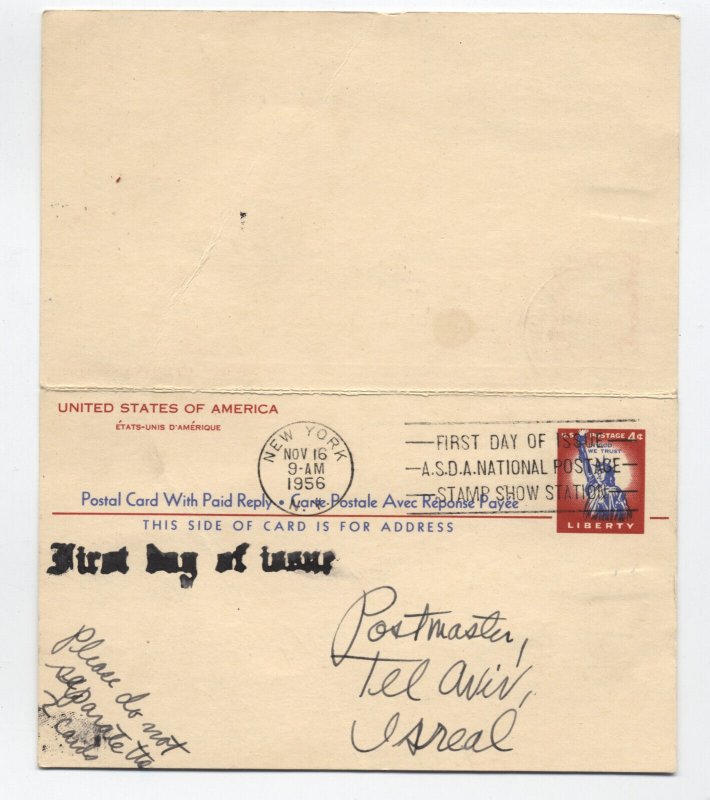 UNITED STATES OF AMERICA
ÉTATS-UNIS D'AMÉRIQUE
NEW YORK
NOV 16
9-AM
1956
N.Y.
FIRST DAY OF ISSUE
A.S.D.A. NATIONAL POSTAGE
STAMP SHOW STATION
U.S. POSTAGE 4¢
IN GOD
WE TRUST
LIBERTY
Postal Card With Paid Reply • Carte Postale Avec Réponse Payée
THIS SIDE OF CARD IS FOR ADDRESS
First day of issue
Postmaster,
Tel Aviv,
Isreal
Please do not
separate the
2 cards